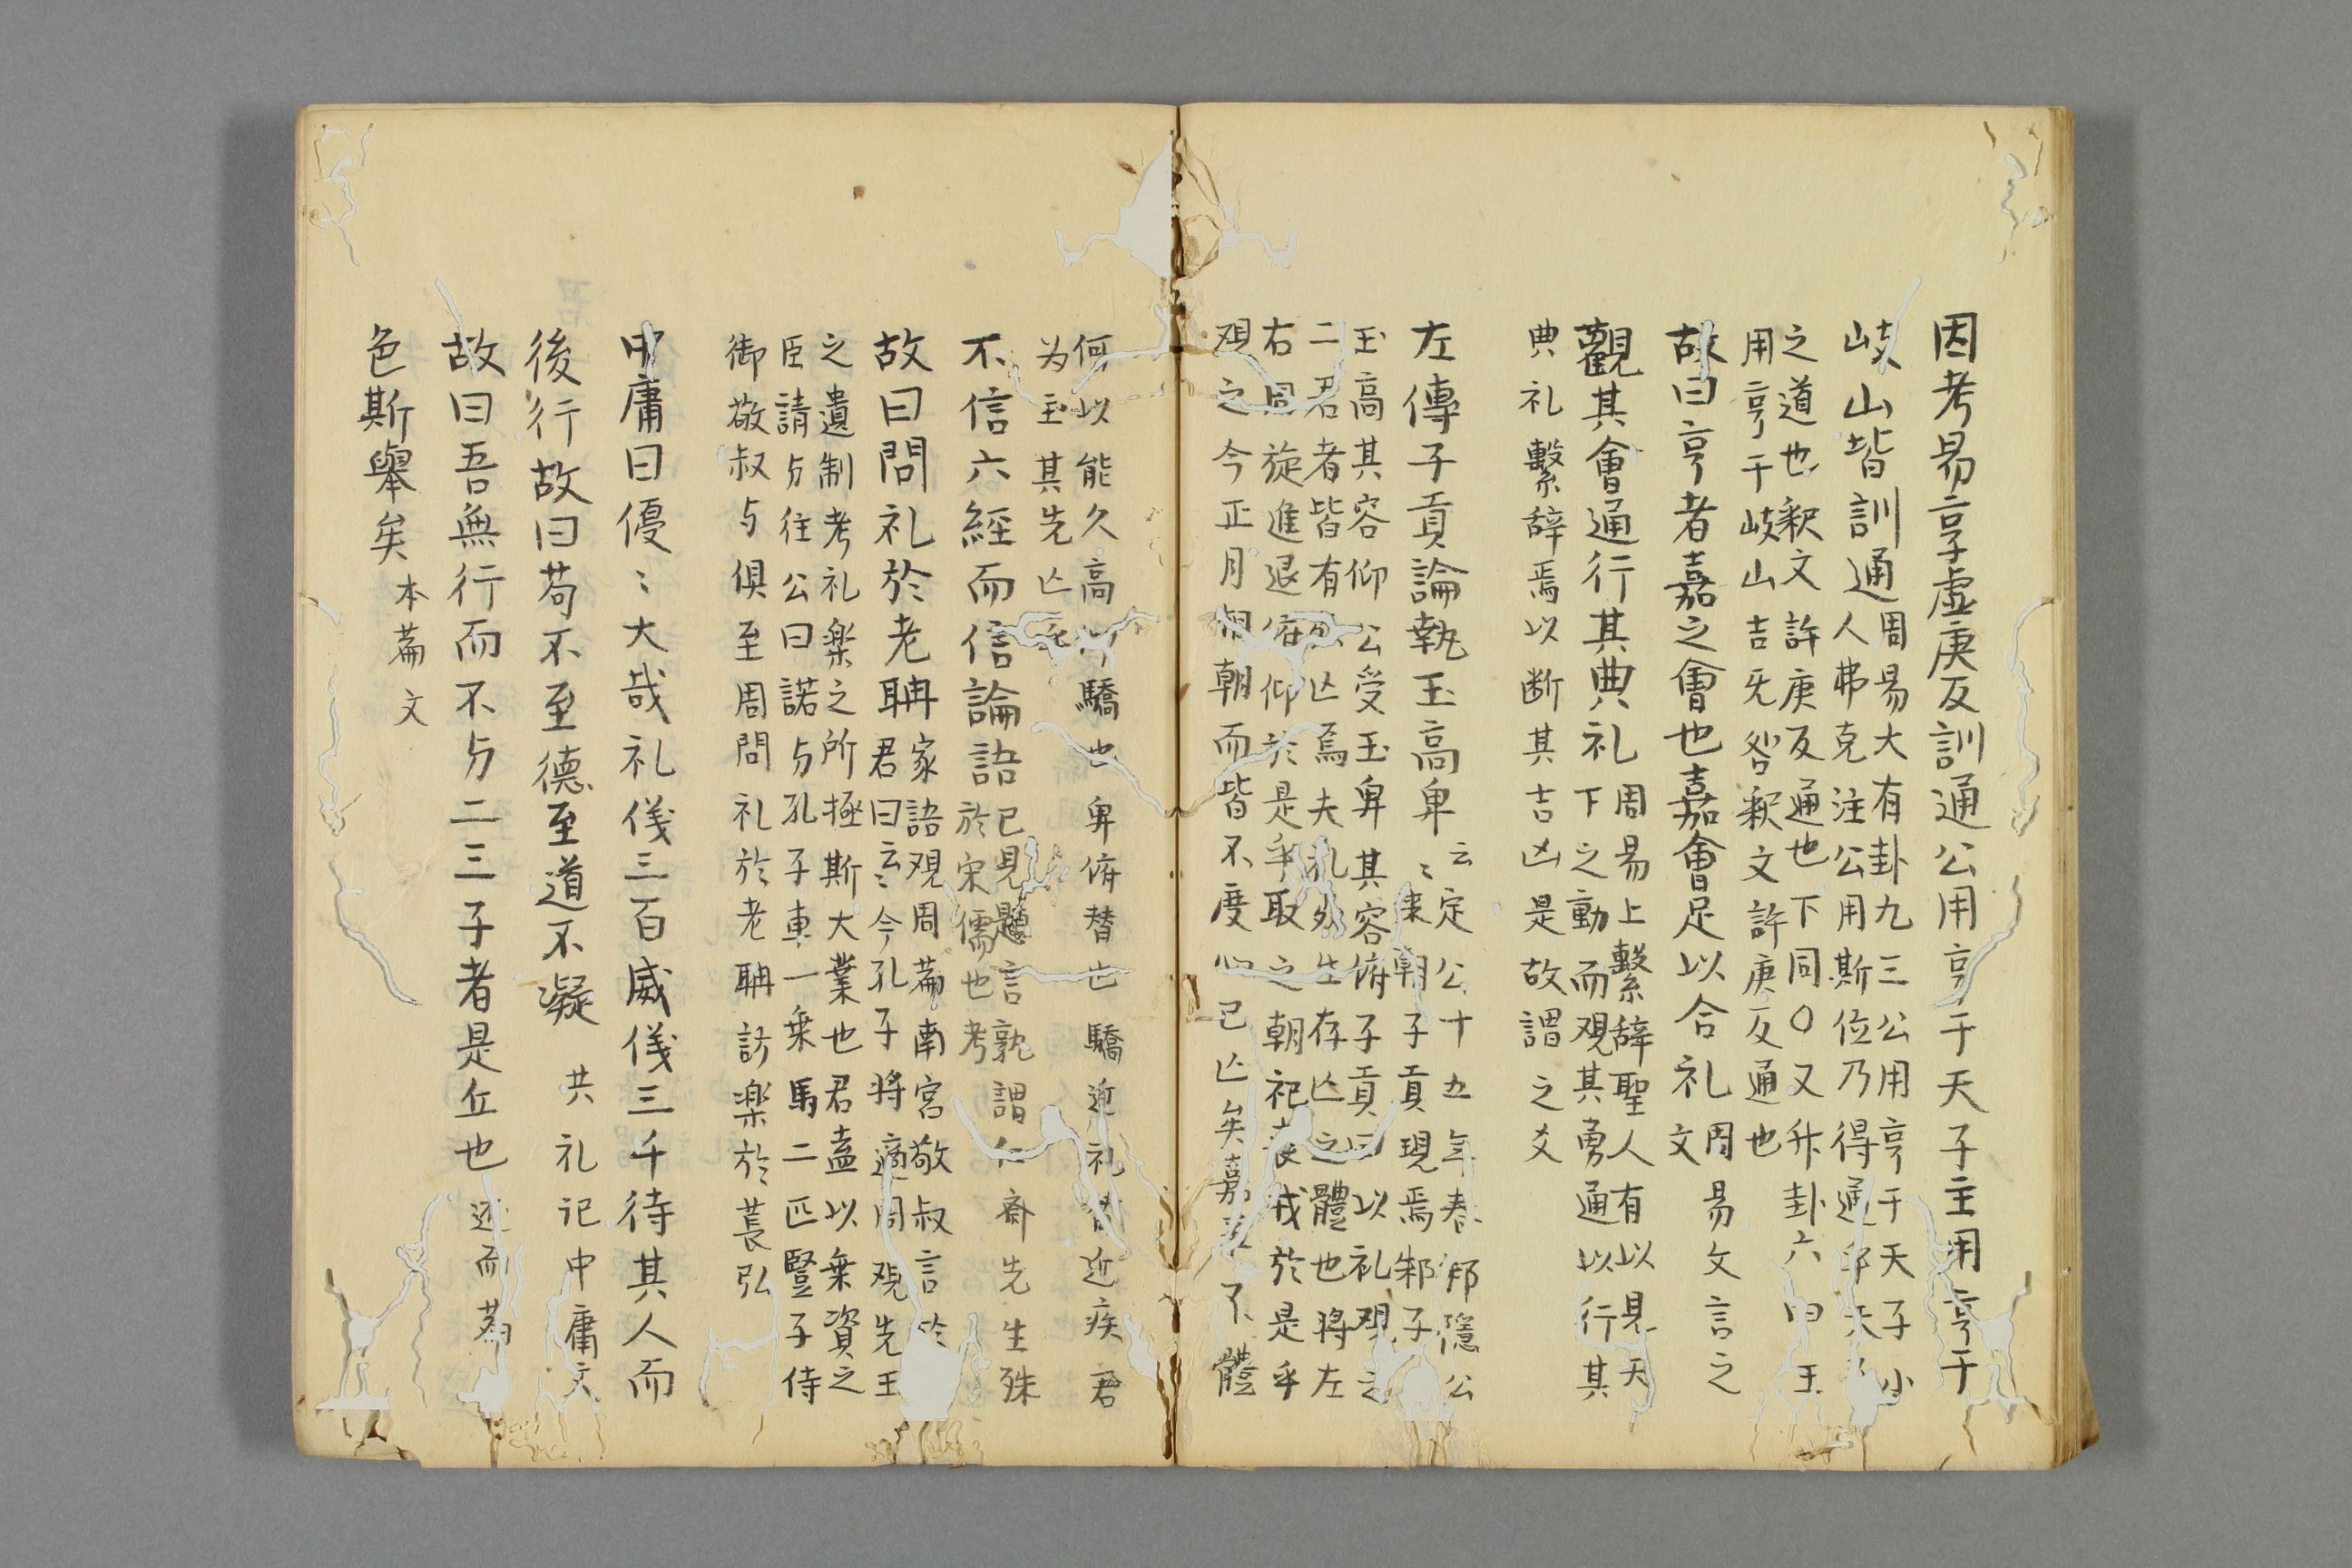 因考易享虚庚反訓通公用亨于天子主用亨于
岐山皆訓通
周易大有卦九三公用亨于天子小
人弗克注公用斯位乃得通乎天子
之道也釈文許庚反通也下同〇又升卦六四王
用亨于岐山吉旡咎釈文許庚反通也
故曰亨者嘉之會也嘉會足以合礼
周易文言之
文
觀其會通行其典礼
周易上繫辞聖人有以見天
下之動而观其勇通以行其
典礼繫辞焉以断其吉凶是故謂之爻
左傳子貢論執玉高卑
云定公十五年春邾隠公
〻来朝子貢現焉邾子
玉高其容仰公受玉卑其容俯子貢曰以礼观之
二君者皆有死亾焉夫礼死生存亾之體也将左
右周旋進退俯仰於是乎取之朝祀喪戎於是乎
观之今正月相朝而皆不度心已亾矣嘉事不體
何以能久高仰驕也卑俯替也驕近礼替近疾君
为主其先亾乎
不信六經而信論語
已見題言孰謂仁斎先生殊
於宋儒也考
故曰問礼於老聃
家語观周萹南宮敬叔言於
君曰云〻今孔子将適周观先王
之遺制考礼楽之所極斯大業也君盍以乗資之
臣請与往公曰諾与孔子車一乗馬二匹豎子侍
御敬叔与俱至周問礼於老聃訪楽於萇弘
中庸曰優〻大哉礼儀三百威儀三千待其人而
後行故曰苟不至德至道不凝
共礼记中庸文
故曰吾無行而不与二三子者是丘也
述而萹
色斯舉矣
本萹文